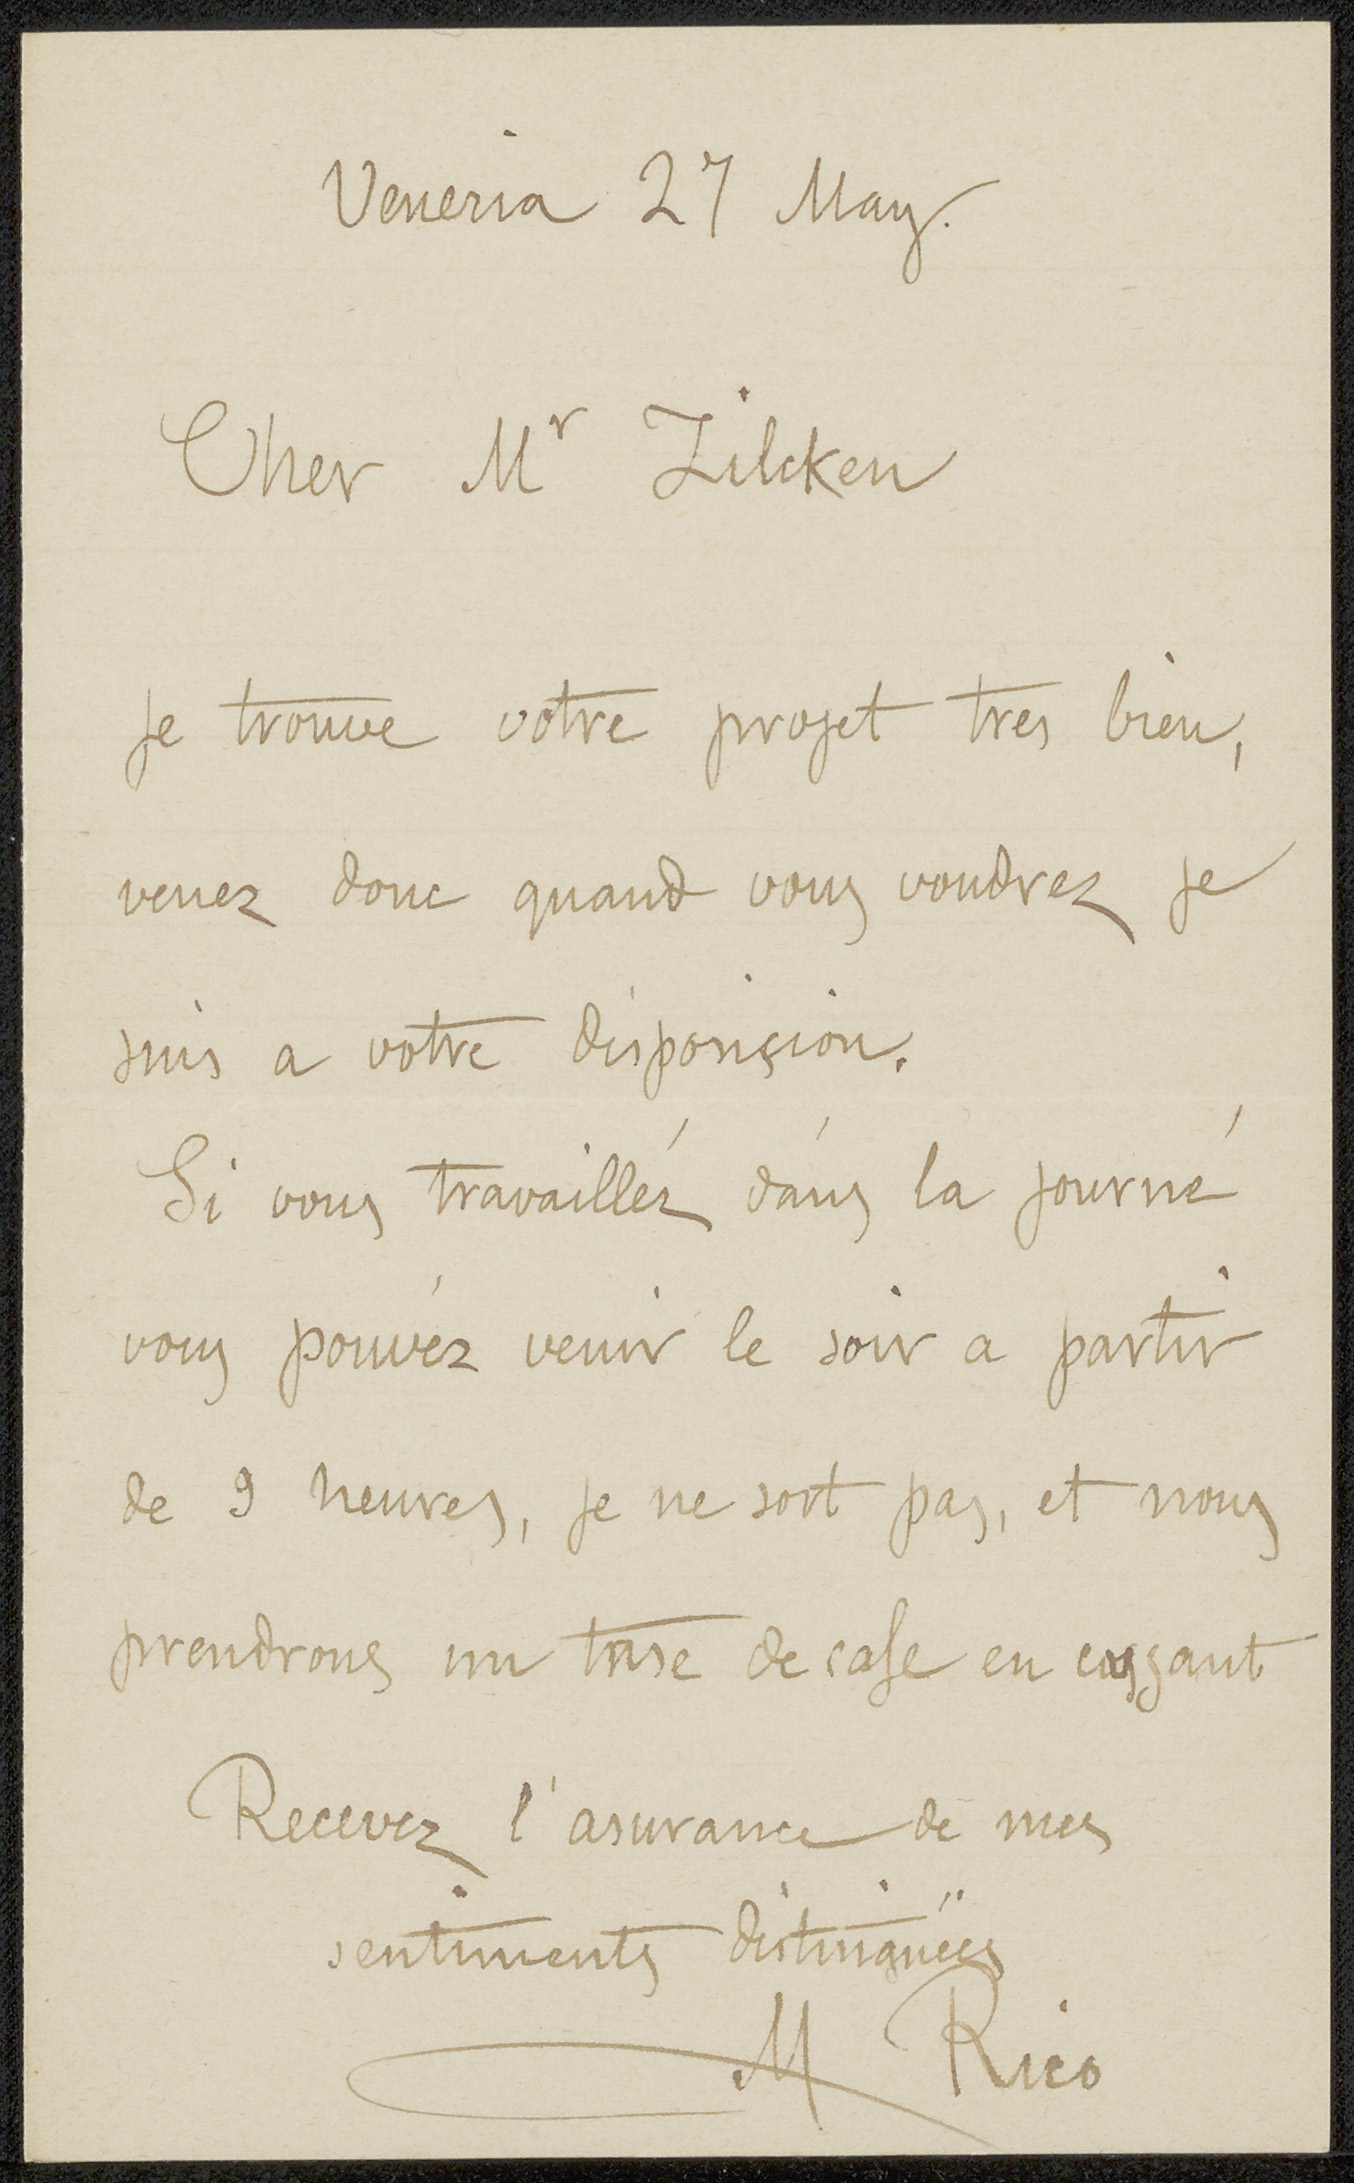 Venezia 27 May.
Cher Mr Zilcken
Je trouve votre projet tres bien,
venez donc quand vous voudrez je
suis a votre disposiçion.
Si vous travailléz dáns la journé
vous pouvéz venir le soir a partir
de 9 heures, je ne sort pas, et nous
prendrons un tase de cafe en
Recevez l'asurance de mes
sentiments distinguëes
M Rico